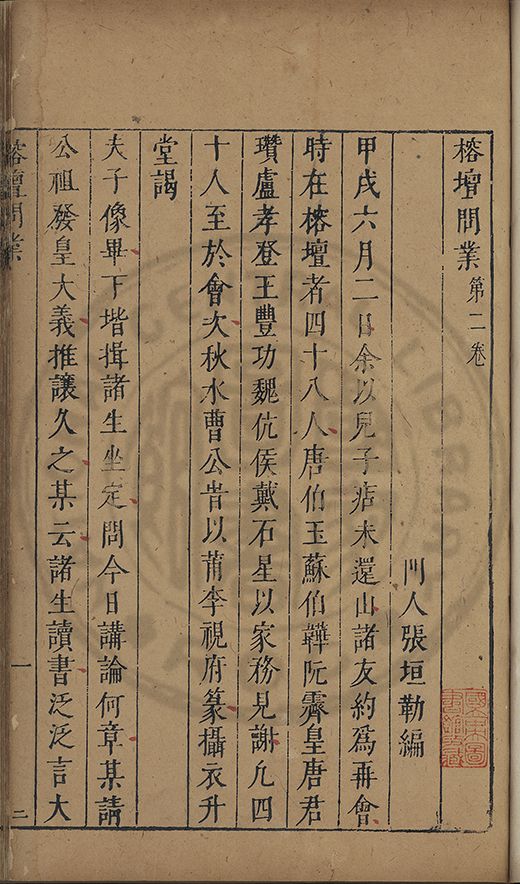 榕壇問業第二卷
門人張垣勒編
甲戌六月二日余以兒子痁未還山諸友約爲再會
時在榕壇者四十八人唐伯玉蘇伯韡阮霽皇唐君
瓚盧孝登王豐功魏伉侯戴石星以家務見謝凢四
十人至於會次秋水曹公昔以莆李視府篆攝衣升
堂謁
夫子像畢下堦揖諸生坐定問今日講論何章某請
公祖發皇大義推讓久之某云諸生讀書泛泛言大
榕壇問業
一
二